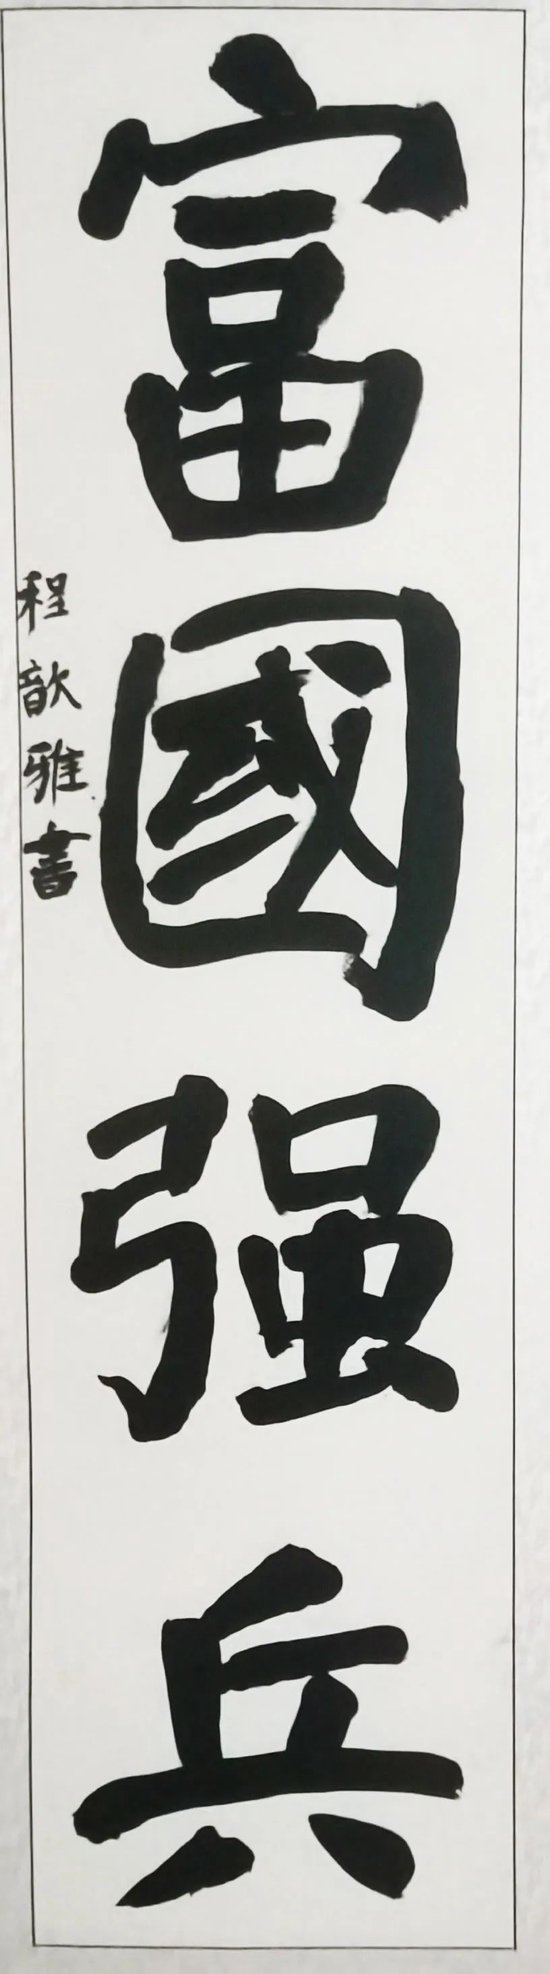 富國强兵
程歆雅書